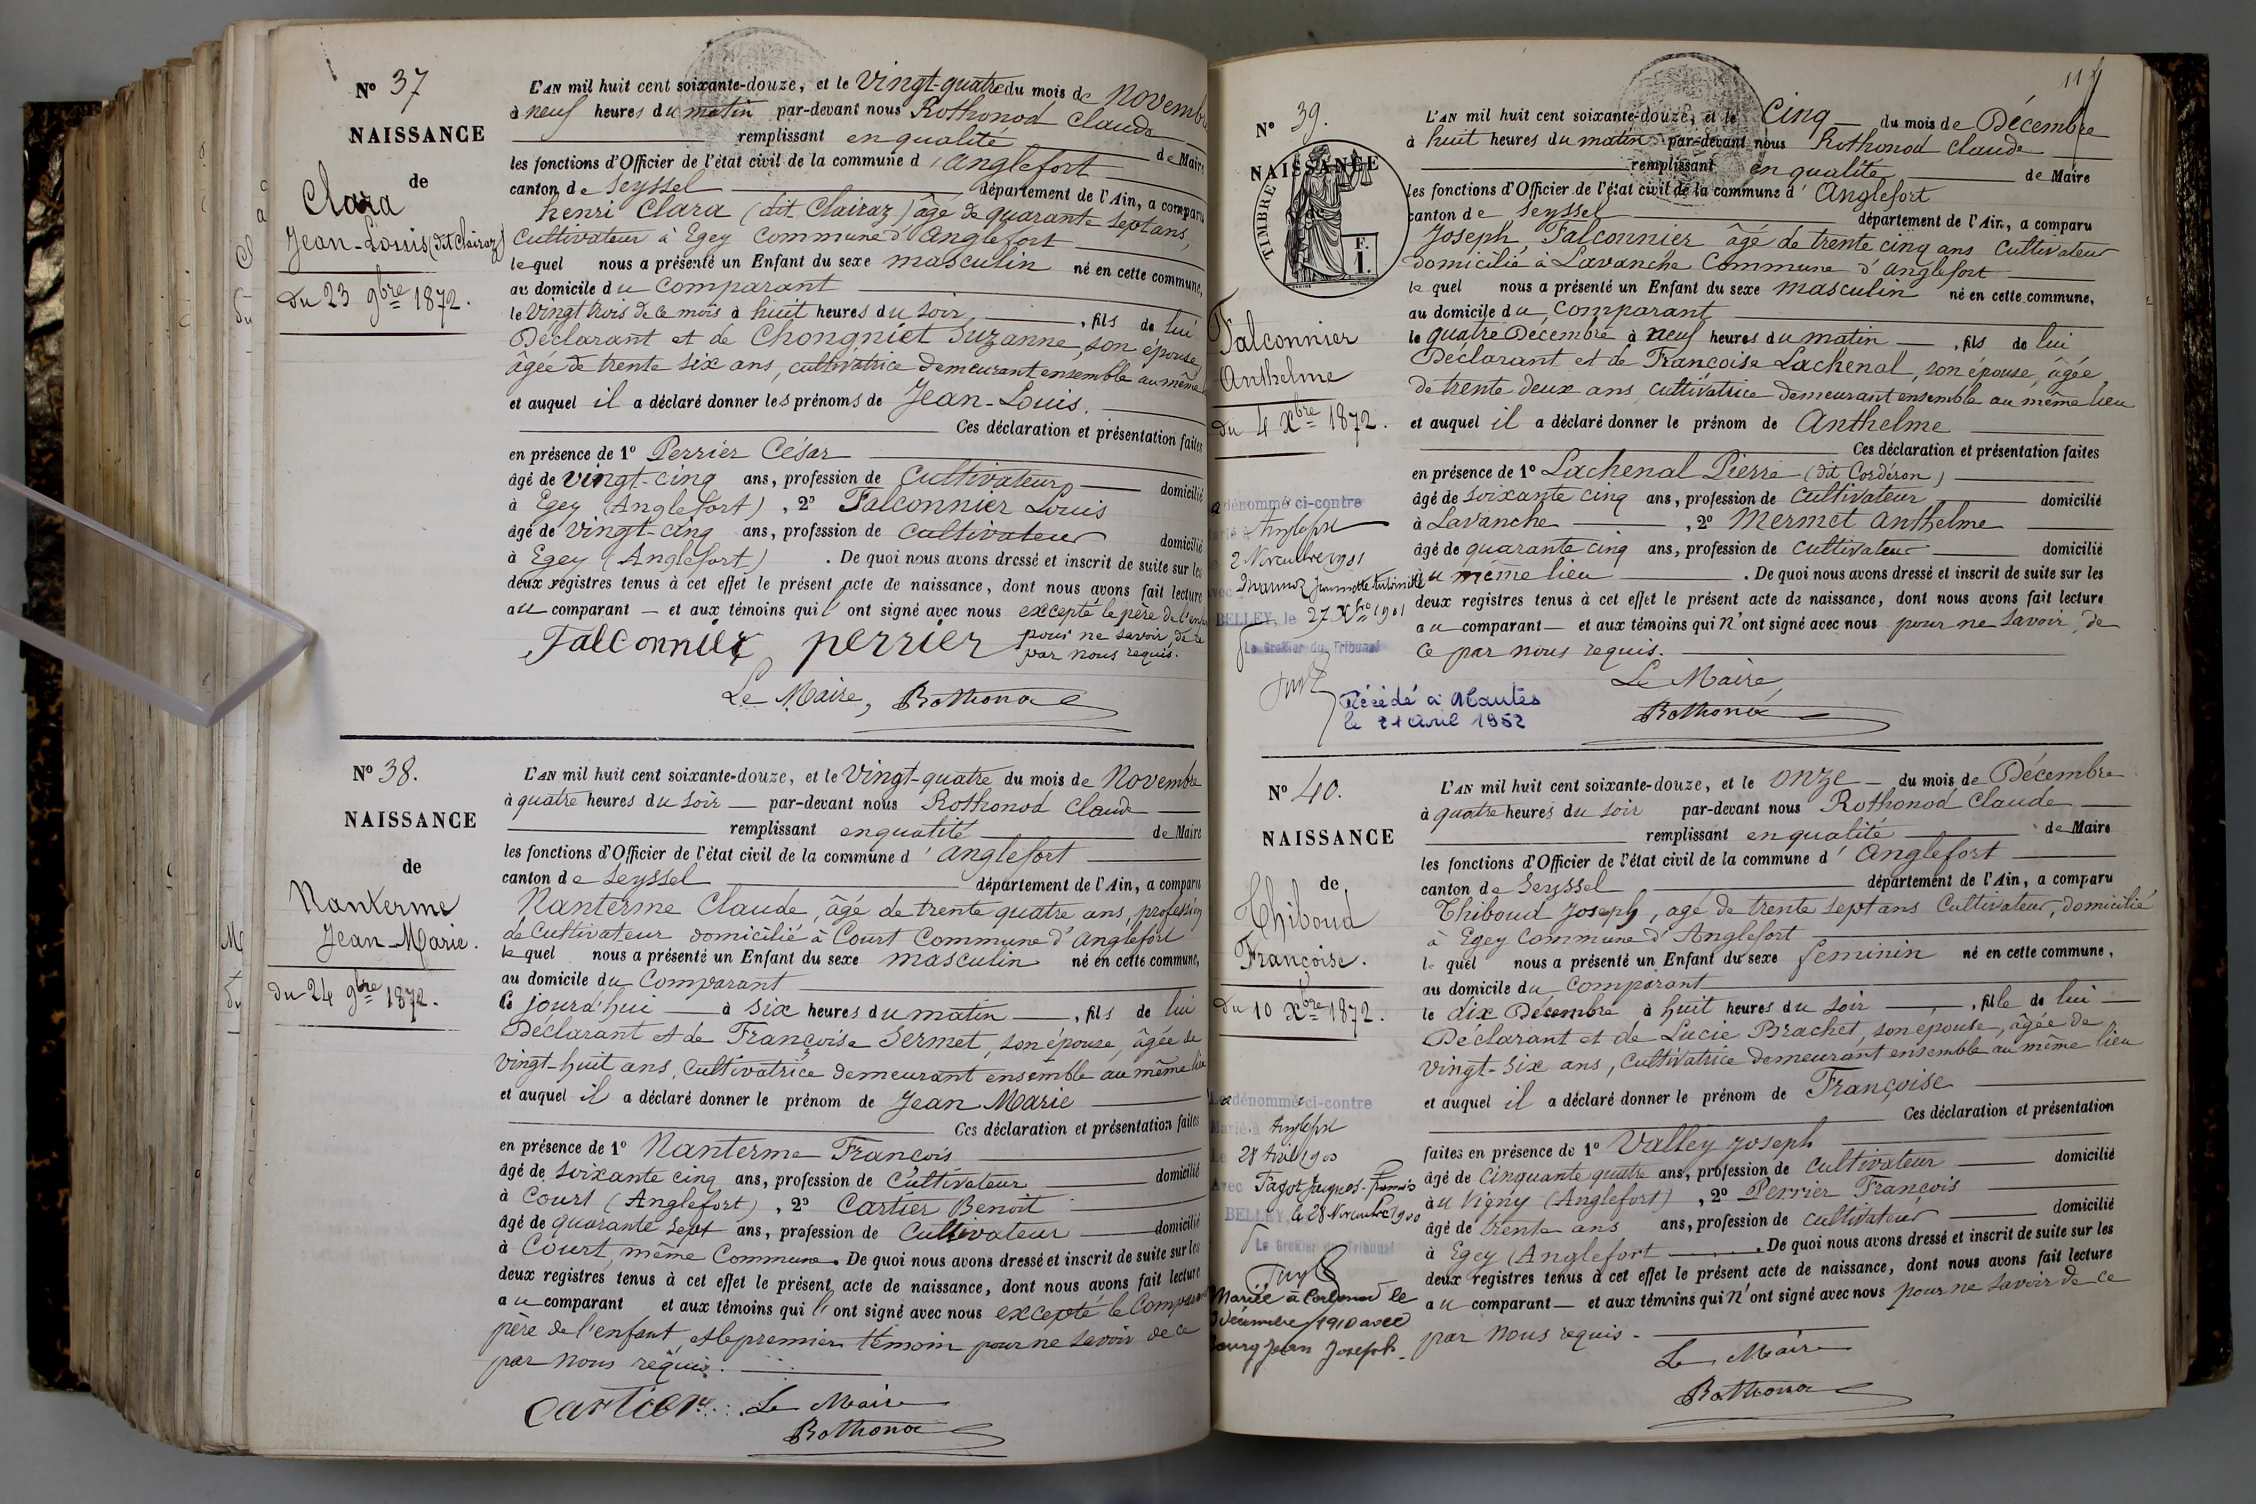 N° 37
NAISSANCE
de
Clara
Jean-Louis (dit Clairaz)
du 23 9bre 1872.
L'AN mil huit cent soixante-douze, et le Vingt-quatre du mois de Novembre
à neuf heures du matin par-devant nous Rothonod Claude
remplissant en qualité de Maire
les fonctions d'Officier de l'état civil de la commune d'Anglefort
canton de Seyssel département de l'Ain, a comparu
henri Clara (dit Clairaz) âgé de quarante sept ans,
Cultivateur à Egey Commune d'Anglefort
lequel nous a présenté un Enfant du sexe masculin né en cette commune,
au domicile du Comparant
le Vingt trois de ce mois à huit heures du soir, fils de lui
Déclarant et de Chongniet Suzanne, son épouse,
âgée de trente six ans, cultivatrice demeurant ensemble au même
et auquel il a déclaré donner les prénoms de Jean-Louis.
Ces déclaration et présentation faites
en présence de 1° Perrier César
âgé de vingt-cinq ans, profession de Cultivateur domicilié
à Egey (Anglefort), 2° Falconnier Louis
âgé de vingt-cinq ans, profession de cultivateur domicilié
à Egey (Anglefort). De quoi nous avons dressé et inscrit de suite sur les
deux registres tenus à cet effet le présent acte de naissance, dont nous avons fait lecture
au comparant — et aux témoins qui l'ont signé avec nous excepté le père de l'enfant
pour ne savoir de ce
par nous requis.
Falconnier perrier
Le Maire, Rothonod
N° 38.
NAISSANCE
de
Nanterme
Jean-Marie.
du 24 9bre 1872.
L'AN mil huit cent soixante-douze, et le Vingt-quatre du mois de Novembre
à quatre heures du soir — par-devant nous Rothonod Claude
remplissant en qualité de Maire
les fonctions d'Officier de l'état civil de la commune d'Anglefort
canton de Seyssel département de l'Ain, a comparu
Nanterme Claude, âgé de trente quatre ans, profession
de Cultivateur domicilié à Court Commune d'Anglefort
lequel nous a présenté un Enfant du sexe masculin né en cette commune,
au domicile du Comparant
Ce jourd'hui — à six heures du matin —, fils de lui
Déclarant et de Françoise Sermet, son épouse, âgée de
vingt-huit ans, Cultivatrice demeurant ensemble au même lieu
et auquel il a déclaré donner le prénom de Jean Marie
Ces déclaration et présentation faites
en présence de 1° Nanterme François
âgé de soixante cinq ans, profession de Cultivateur domicilié
à Court (Anglefort), 2° Cartier Benoit
âgé de quarante sept ans, profession de Cultivateur domicilié
à Court même Commune. De quoi nous avons dressé et inscrit de suite sur les
deux registres tenus à cet effet le présent acte de naissance, dont nous avons fait lecture
au comparant et aux témoins qui l'ont signé avec nous excepté le Comparant
père de l'enfant et le premier témoin pour ne savoir de ce
par nous requis.
Cartier Le Maire
Rothonod
N° 39.
NAISSANCE
TIMBRE
F.
1.
Falconnier
Anthelme
du 4 Xbre 1872.
dénommé ci-contre
Marié à Anglefort
2 Novembre 1901
avec Jeannette
BELLEY, le 27 Xbre 1901
Le Greffier du Tribunal
Décédé à Nantes
le 21 avril 1952
L'AN mil huit cent soixante-douze, et le Cinq — du mois de Décembre
à huit heures du matin par-devant nous Rothonod Claude
remplissant en qualité de Maire
les fonctions d'Officier de l'état civil de la commune d'Anglefort
canton de Seyssel département de l'Ain, a comparu
Joseph, Falconnier âgé de trente cinq ans Cultivateur
domicilié à Lavanche Commune d'Anglefort
lequel nous a présenté un Enfant du sexe masculin né en cette commune,
au domicile du Comparant
le quatre Décembre à neuf heures du matin —, fils de lui
Déclarant et de Françoise Lachenal, son épouse, âgée
de trente deux ans, cultivatrice demeurant ensemble au même lieu
et auquel il a déclaré donner le prénom de Anthelme
Ces déclaration et présentation faites
en présence de 1° Lachenal Pierre (dit Cordéron)
âgé de soixante cinq ans, profession de Cultivateur domicilié
à Lavanche, 2° Mermet Anthelme
âgé de quarante cinq ans, profession de Cultivateur domicilié
au même lieu. De quoi nous avons dressé et inscrit de suite sur les
deux registres tenus à cet effet le présent acte de naissance, dont nous avons fait lecture
au comparant — et aux témoins qui n'ont signé avec nous pour ne savoir, de
ce par nous requis.
Le Maire,
Rothonod
N° 40.
NAISSANCE
de
Thiboud
Françoise.
du 10 Xbre 1872.
dénommé ci-contre
Marié à Anglefort
le 28 Avril 1900
avec Fagot Jacques-François
BELLEY, le 28 Novembre 1900
Le Greffier du Tribunal
Mariée à Corbonod le
décembre 1910 avec
Bourg Jean Joseph.
L'AN mil huit cent soixante-douze, et le onze — du mois de Décembre
à quatre heures du soir par-devant nous Rothonod Claude
remplissant en qualité de Maire
les fonctions d'Officier de l'état civil de la commune d'Anglefort
canton de Seyssel département de l'Ain, a comparu
Thiboud Joseph, âgé de trente sept ans Cultivateur, domicilié
à Egey Commune d'Anglefort
lequel nous a présenté un Enfant du sexe feminin né en cette commune,
au domicile du Comparant
le dix Décembre à huit heures du soir, fille de lui
Déclarant et de Lucie Brachet, son épouse, âgée de
vingt-six ans, Cultivatrice demeurant ensemble au même lieu
et auquel il a déclaré donner le prénom de Françoise
Ces déclaration et présentation
faites en présence de 1° Valley Joseph
âgé de Cinquante quatre ans, profession de Cultivateur domicilié
au Vigny (Anglefort), 2° Perrier François
âgé de trente ans ans, profession de cultivateur domicilié
à Egey (Anglefort. De quoi nous avons dressé et inscrit de suite sur les
deux registres tenus à cet effet le présent acte de naissance, dont nous avons fait lecture
au comparant — et aux témoins qui n'ont signé avec nous pour ne savoir de ce
par nous requis.
Le Maire
Rothonod